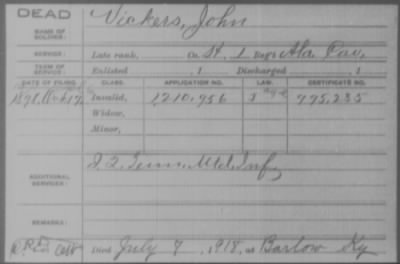 DEAD
Vickers, John
NAME OF SOLDIER:
SERVICE: Late rank, Co. H, 1 Reg't Ala. Cav.
TERM OF SERVICE: Enlisted , 1 Discharged , 1
DATE OF FILING. CLASS. APPLICATION NO. LAW. CERTIFICATE NO.
1898 Invalid, 1,210,956 995,235
Widow,
Minor,
ADDITIONAL SERVICES: Tenn. Mtd. Inf.
REMARKS:
Died July 7, 1918, at Barlow Ky